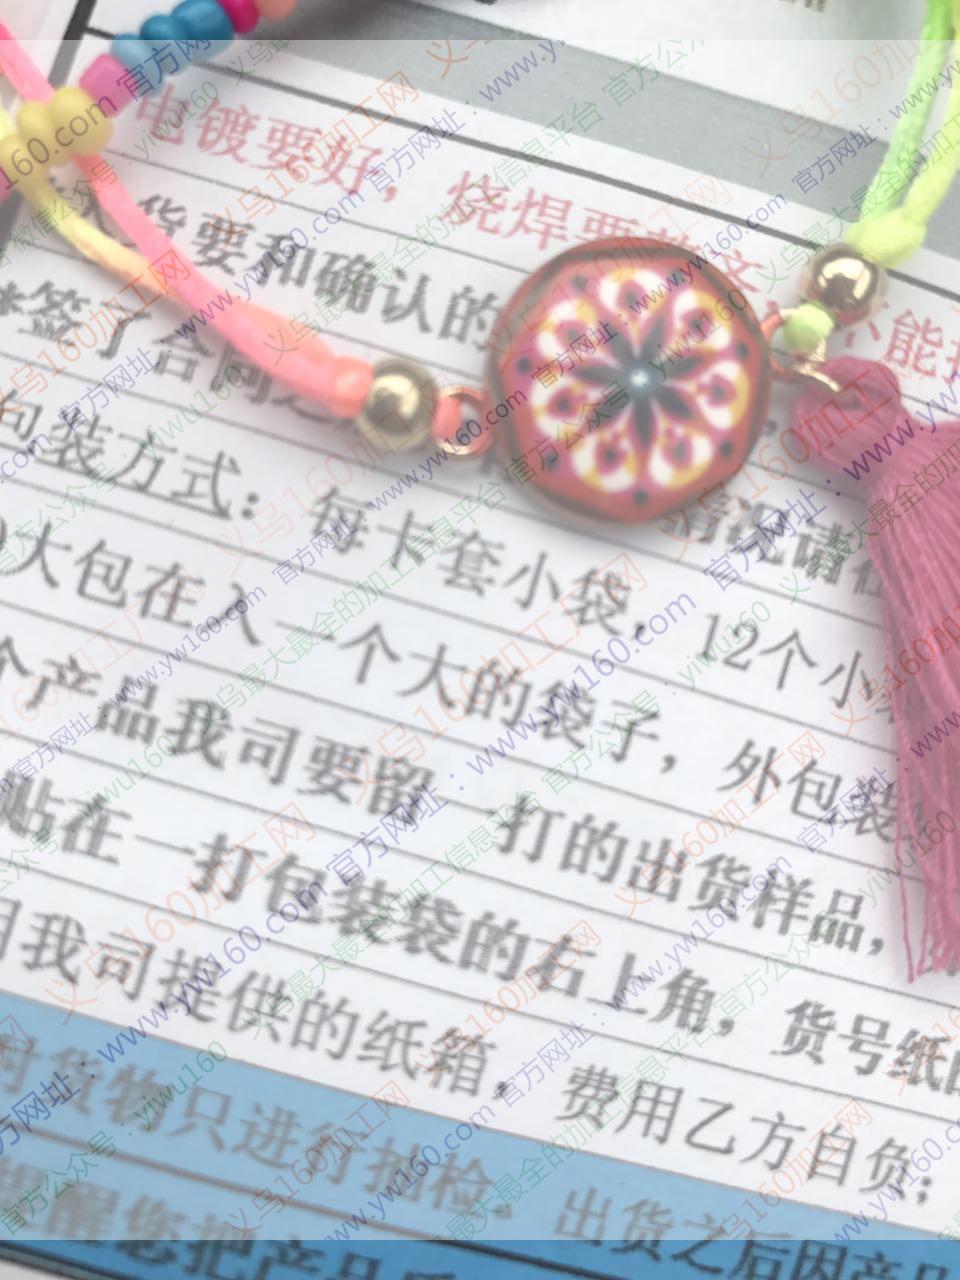 电镀要好，烧焊要 不能
货要和确认的
*签了合同之
包装方式：每卡套小袋，12个小
大包在入一个大的袋子，外包装
个产品我司要留一打的出货样品，
贴在一打包装袋的右上角，货号纸
用我司提供的纸箱，费用乙方自负；
对货物只进行抽检，出货之后因产品
醒您把产品
义乌160加工网 官方网址：www.yw160.com
义乌最大最全的加工信息平台 官方公众号：yiwu160